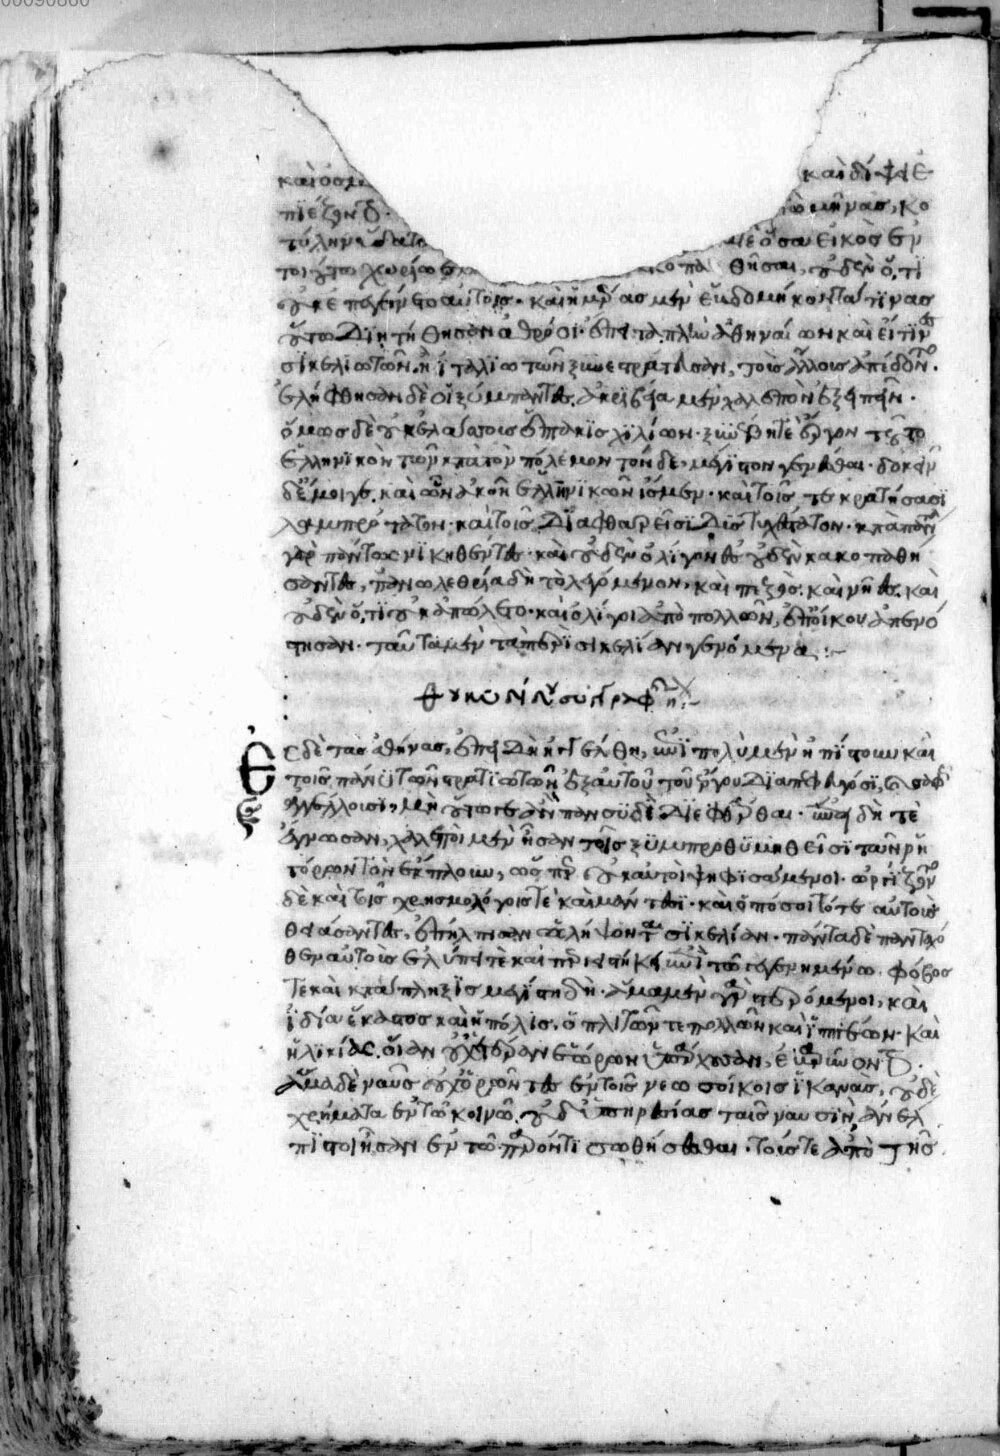 καὶ ὀσμα καὶ δίψει
πιέζοντο μῆνας, κο
τύλην ὕδατο ὅσα εἰκὸς ἐν
τοιούτω χωρίω κοπα θῆσαι, οὐδὲν ὅ,τι
οὐκ ἐπεγένετο αὐτοῖς· καὶ ἡμέρας μὲν ἑβδομήκοντά τινας
οὕτω διητήθησαν ἀθρόοι· ἔπειτα πλὴν ἀθηναίων καὶ εἴ τινες
σικελιωτῶν ἢ ἰταλιωτῶν ξυνεστράτευσαν, τοὺς ἄλλους ἀπέδοντο.
ἐλήφθησαν δὲ οἱ ξύμπαντες, ἀκριβεία μὲν χαλεπὸν ἐξειπεῖν·
ὅμως δὲ οὐκ ἐλάσσους ἑπτακισχιλίων· ξυνέβη τὲ ἔργον τοῦτο
ἑλληνικὸν τῶν κατὰ τὸν πόλεμον τόνδε, μέγιστον γενέσθαι· δοκεῖν
δέ μοι γε, καὶ ὧν ἀκοῆ ἑλληνικῶν ἴσμεν· καὶ τοῖς τε κρατήσασι
λαμπρότατον· καὶ τοῖς διαφθαρεῖσι δυστυχέστατον· κατὰ πάντα
γὰρ πάντως νικηθέντες· καὶ οὐδὲν ὀλίγον ἐς οὐδὲν κακοπαθή
σαντες, πανωλεθρία δὴ τὸ λεγόμενον, καὶ πεζὸς καὶ νῆες καὶ
οὐδὲν ὅ,τι οὐκ ἀπώλετο· καὶ ὀλίγοι ἀπὸ πολλῶν, ἐπ' οἴκου ἀπενό
στησαν· ταῦτα μὲν τὰ περὶ σικελίαν γενόμενα :~
θουκυδίδου συγγραφῆς η :~
Ἐς δὲ τὰς ἀθήνας, ἐπειδὴ ἠγγέλθη, ἐπὶ πολὺ μὲν ἠπίστουν καὶ
τοῖς πάνυ τῶν στρατιωτῶν ἐξ αὐτοῦ τοῦ ἔργου διαπεφευγόσι, καὶ σαφῶς
ἀγγέλλουσι, μὴ οὕτως ἂν πανσυδὶ διεφθάρθαι· ἐπειδὴ τὲ
ἔγνωσαν, χαλεποὶ μὲν ἦσαν τοῖς ξυμπροθυμηθεῖσι τῶν ῥη
τόρων τὸν ἔκπλουν, ὥσπερ οὐκ αὐτοὶ ψηφισάμενοι· ὠργίζοντο
δὲ καὶ τοῖς χρησμολόγοις τὲ καὶ μάντεσι· καὶ ὁπόσοι τότε αὐτοὺς
θειάσαντες, ἐπήλπισαν ὡς λήψονται σικελίαν· πάντα δὲ πανταχό
θεν αὐτοὺς ἐλύπει τὲ καὶ περιειστήκει ἐπὶ τῶ γεγενημένω φόβος
τὲ καὶ κατάπληξις μεγίστη δὴ· ἅμα μὲν γὰρ στερόμενοι, καὶ
ἰδία ἕκαστος καὶ ἡ πόλις, ὁπλιτῶν τε πολλῶν καὶ ἱππέων καὶ
ἡλικίας, οἵαν οὐχ ἑτέραν ἑώρων ὑπάρχουσαν, ἐβαρύνοντο·
ἅμα δὲ ναῦς οὐχ ὁρῶντες ἐν τοῖς νεωσοίκοις ἱκανὰς, οὐδὲ
χρήματα ἐν τῶ κοινῶ, οὐδ' ὑπηρεσίας ταῖς ναυσὶν, ἀνέλ
πιστοι ἦσαν ἐν τῶ παρόντι σωθήσεσθαι· τούς τε ἀπὸ τῆς